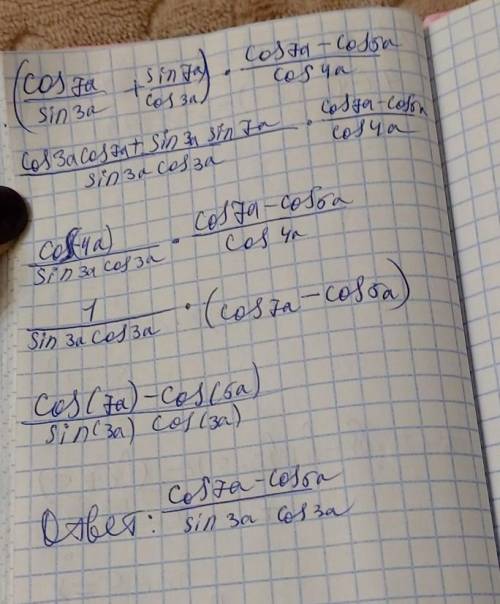 (cos7a/sin3a + sin7a/cos3a) · (cos7a - cos5a)/cos4a
(cos3acos7a + sin3a sin7a)/(sin3a cos3a) · (cos7a - cos5a)/cos4a
cos(-4a)/(sin3a cos3a) · (cos7a - cos5a)/cos4a
1/(sin3a cos3a) · (cos7a - cos5a)
(cos(7a) - cos(5a))/(sin(3a) cos(3a))
Ответ: (cos7a - cos5a)/(sin3a cos3a)